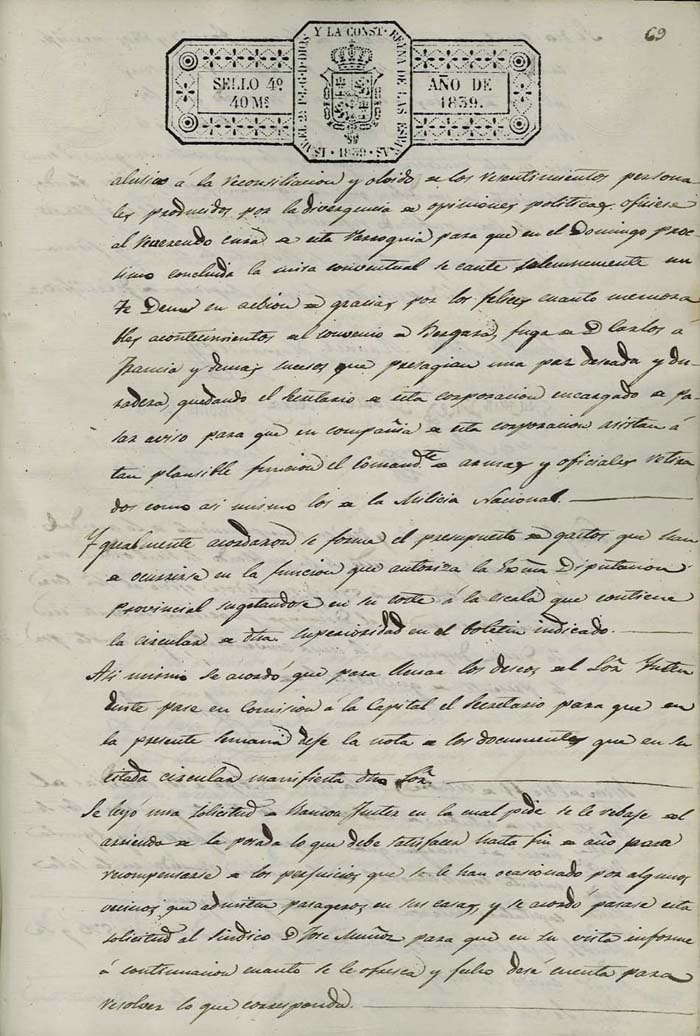 69
ISABEL 2ª P.L.G.D.DIOS Y LA CONST. REYNA DE LAS ESPAÑAS
SELLO 4º
40 Ms
AÑO DE
1839.
1839
alusiva á la reconsiliacion y olvido de los resentimientos persona
les producidos por la divergencia de opiniones politicas, oficiese
al Reverendo Cura de esta Parroquia para que en el Domingo proc
simo concluida la misa conventual se cante solemnemente un
Te Deum en accion de gracias por los felices cuanto memora
bles acontecimientos del convenio de Vergara, fuga de D. Carlos a
Francia y demas sucesos que presagian una paz deseada y du-
radera, quedando el Secretario de esta corporacion encargado de pa
sar aviso para que en compañia de esta corporacion asistan á
tan plausible funcion el Comandte de armas y oficiales retira
dos como asi mismo los de la Milicia Nacional.
Ygualmente acordaron se forme el presupuesto de gastos que han
de ocurrirse en la funcion que autoriza la Exma Diputacion
Provincial sugetandose en su coste á la escala que contiene
la circular de dha superioridad en el boletin indicado.
Asi mismo se acordó que para llenar los deseos del Sor Ynten
dente pase en Comision á la Capital el Secretario para que en
la presente semana deje la nota de los documentos que en su
citada circular manifiesta dho Sor
Se leyó una solicitud de Ramon en la cual pide se le rebaje del
arriendo de la posada lo que debe satisfacer hasta fin de año para
recompensarse de los perjuicios que se le han ocasionado por algunos
vecinos que admiten pasageros en sus casas, y se acordó pasase esta
solicitud al Sindico D. Jose Muñoz para que en su vista informe
á continuacion cuanto se le ofresca y fecho dese cuenta para
resolver lo que corresponda.